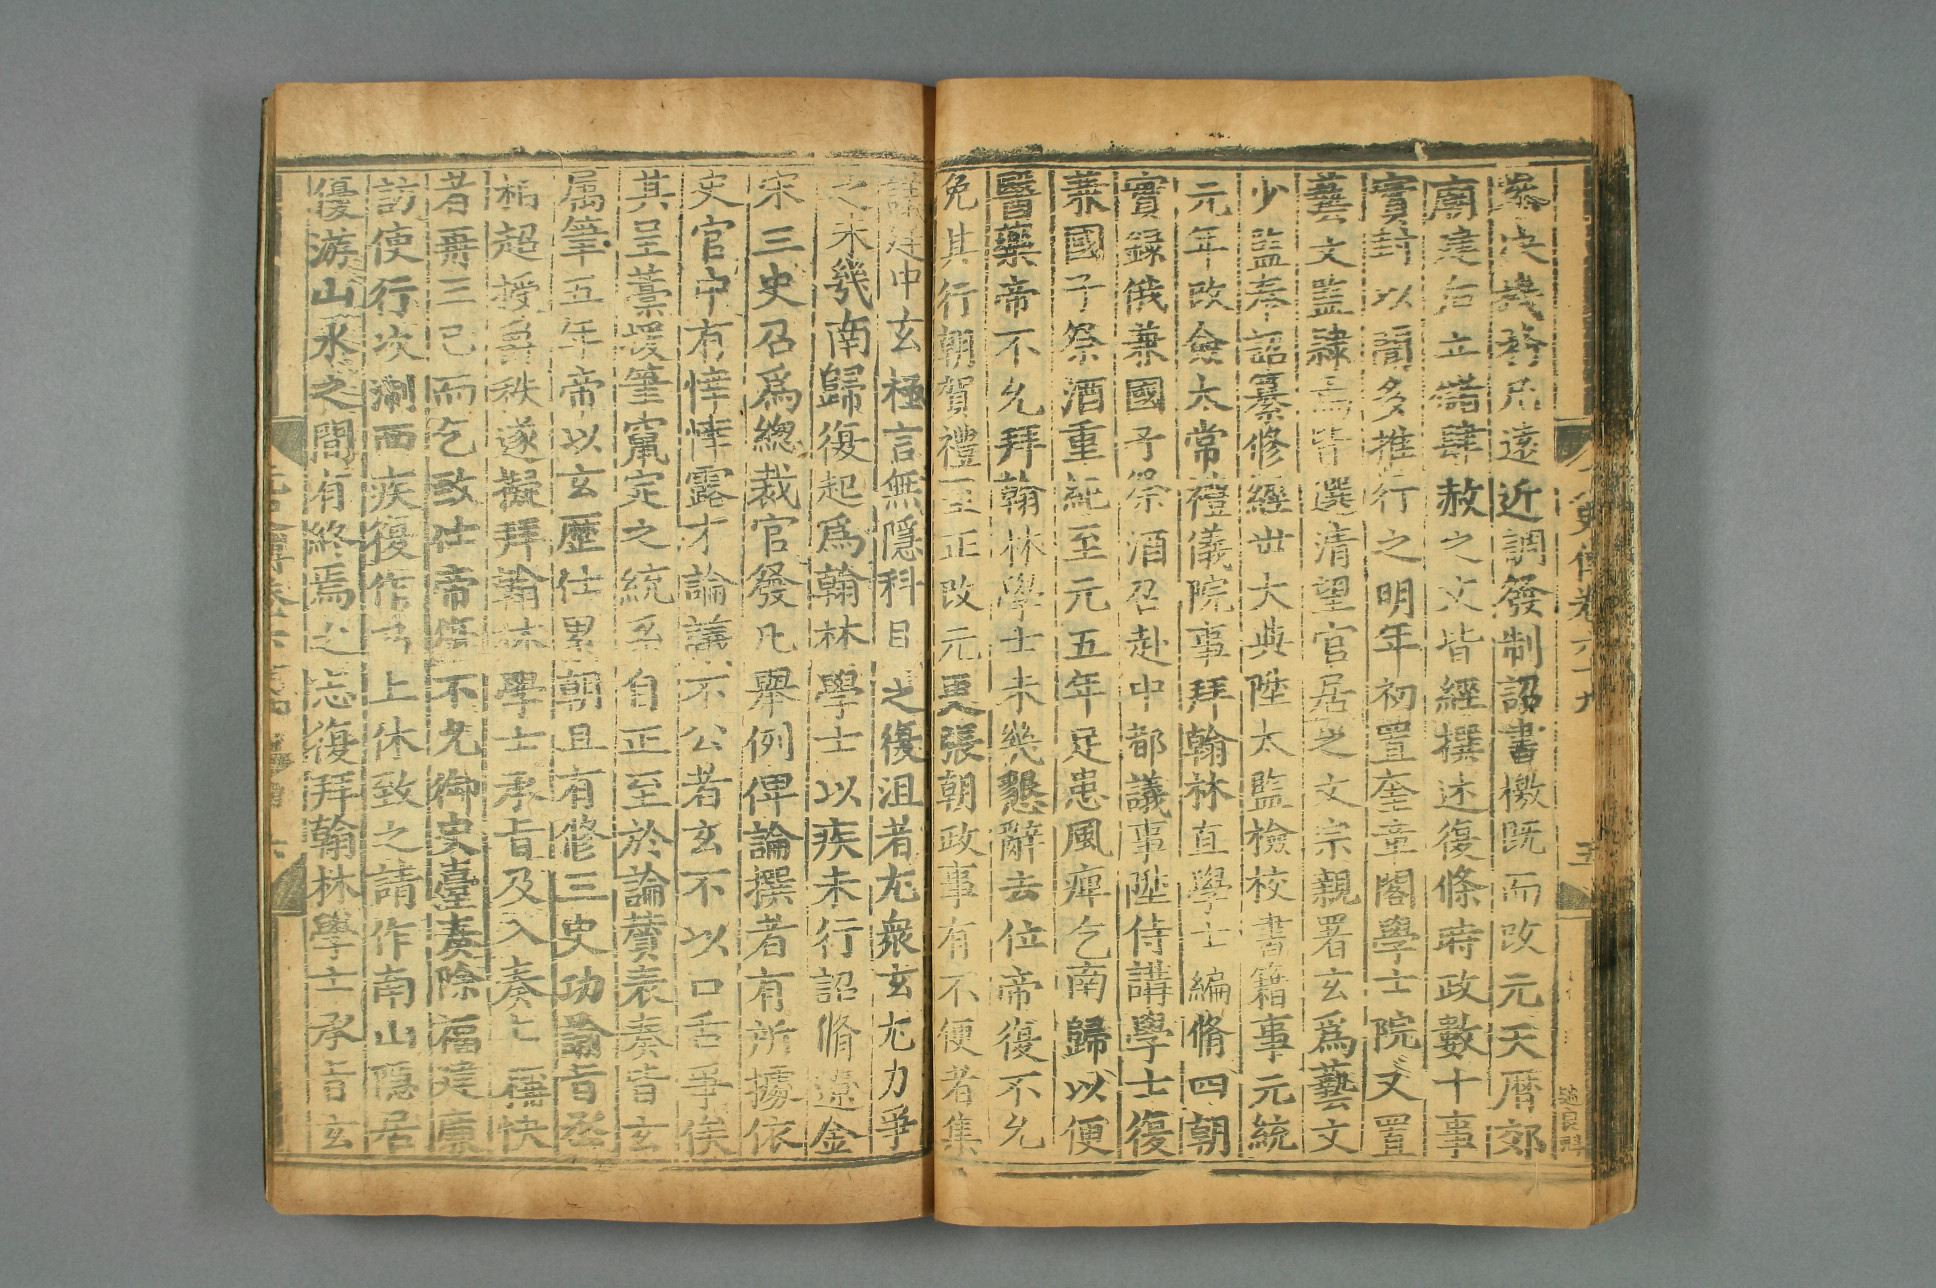 參決機務凡遠近調發制詔書檄既而改元天曆郊
廟建后立儲肆赦之文皆經撰述復條時政數十事
實封以聞多推行之明年初置奎章閣學士院又置
藝文監隸焉皆選清望官居之文宗親署玄爲藝文
少監奉詔纂修經世大典陞太監檢校書籍事元統
元年改僉太常禮儀院事拜翰林直學士編脩四朝
實錄俄兼國子祭酒召赴中都議事陞侍講學士復
兼國子祭酒重紀至元五年足患風痺乞南歸以便
醫藥帝不允拜翰林學士未幾懇辭去位帝復不允
免其行朝賀禮至正改元更張朝政事有不便者集
議廷中玄極言無隱科目之復沮者尤衆玄尤力爭
之未幾南歸復起爲翰林學士以疾未行詔脩遼金
宋三史召爲總裁官發凡舉例俾論撰者有所據依
史官中有悻悻露才論議不公者玄不以口舌爭俟
其呈藁援筆竄定之統系自正至於論贊表奏皆玄
属筆五年帝以玄歷仕累朝且有修三史功諭旨丞
相超授爵秩遂擬拜翰林學士承旨及入奏上稱快
者再三已而乞致仕帝復不允御史臺奏除福建廉
訪使行次浙西疾復作乃上休致之請作南山隱居
優游山水之間有終焉之志復拜翰林學士承旨玄